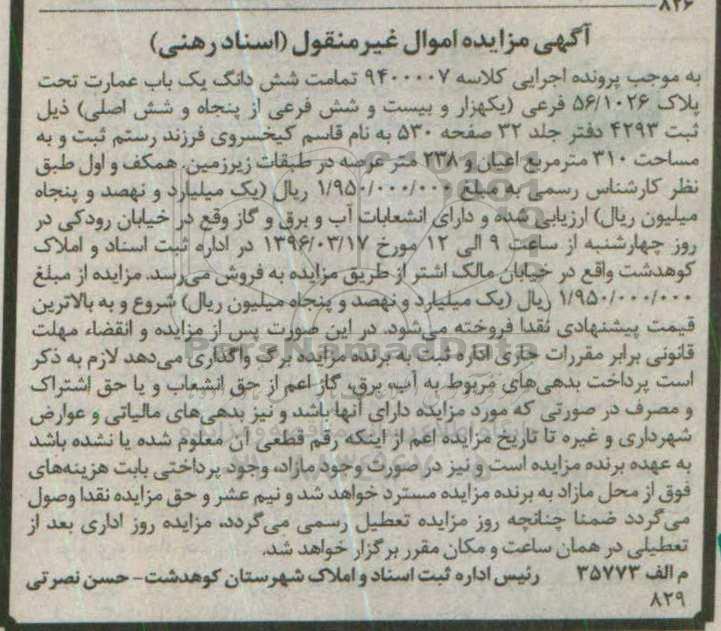 ۸۲۶
آگهی مزایده اموال غیرمنقول (اسناد رهنی)
به موجب پرونده اجرایی کلاسه ۹۴۰۰۰۰۷ تمامت شش دانگ یک باب عمارت تحت
پلاک ۵۶/۱۰۲۶ فرعی (یکهزار و بیست و شش فرعی از پنجاه و شش اصلی) ذیل
ثبت ۴۲۹۳ دفتر جلد ۳۲ صفحه ۵۳۰ به نام قاسم کیخسروی فرزند رستم ثبت و به
مساحت ۳۱۰ مترمربع اعیان و ۲۳۸ متر عرصه در طبقات زیرزمین، همکف و اول طبق
نظر کارشناس رسمی به مبلغ ۱/۹۵۰/۰۰۰/۰۰۰ ریال (یک میلیارد و نهصد و پنجاه
میلیون ریال) ارزیابی شده و دارای انشعابات آب و برق و گاز وقع در خیابان رودکی در
روز چهارشنبه از ساعت ۹ الی ۱۲ مورخ ۱۳۹۶/۰۳/۱۷ در اداره ثبت اسناد و املاک
کوهدشت واقع در خیابان مالک اشتر از طریق مزایده به فروش می‌رسد. مزایده از مبلغ
۱/۹۵۰/۰۰۰/۰۰۰ ریال (یک میلیارد و نهصد و پنجاه میلیون ریال) شروع و به بالاترین
قیمت پیشنهادی نقدا فروخته می‌شود. در این صورت پس از مزایده و انقضاء مهلت
قانونی برابر مقررات جاری اداره ثبت به برنده مزایده برگ واگذاری می‌دهد لازم به ذکر
است پرداخت بدهی‌های مربوط به آب، برق، گاز اعم از حق انشعاب و یا حق اشتراک
و مصرف در صورتی که مورد مزایده دارای آنها باشد و نیز بدهی‌های مالیاتی و عوارض
شهرداری و غیره تا تاریخ مزایده اعم از اینکه رقم قطعی آن معلوم شده یا نشده باشد
به عهده برنده مزایده است و نیز در صورت وجود مازاد، وجود پرداختی بابت هزینه‌های
فوق از محل مازاد به برنده مزایده مسترد خواهد شد و نیم عشر و حق مزایده نقدا وصول
می‌گردد ضمنا چنانچه روز مزایده تعطیل رسمی می‌گردد، مزایده روز اداری بعد از
تعطیلی در همان ساعت و مکان مقرر برگزار خواهد شد.
م الف ۳۵۷۷۳ رئیس اداره ثبت اسناد و املاک شهرستان کوهدشت- حسن نصرتی
۸۲۹
ParsNamadData